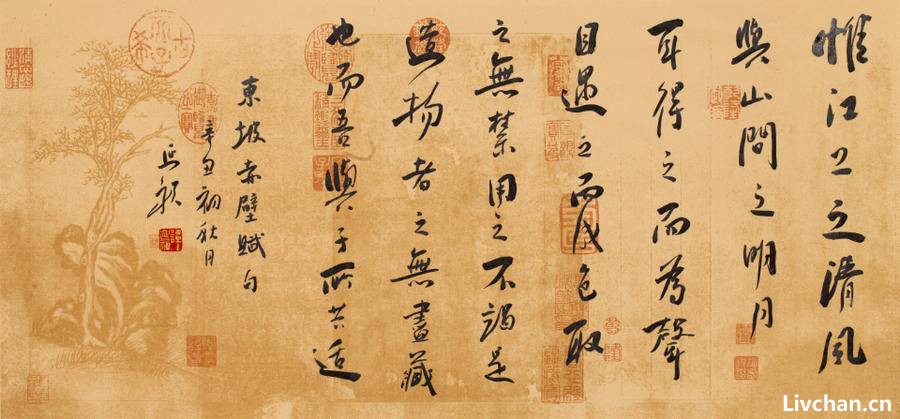 惟江上之清風
與山間之明月
耳得之而為聲
目遇之而成色取
之無禁用之不竭是
造物者之無盡藏
也而吾與子所共適
東坡赤壁賦句
辛丑初秋月
Livchan.cn